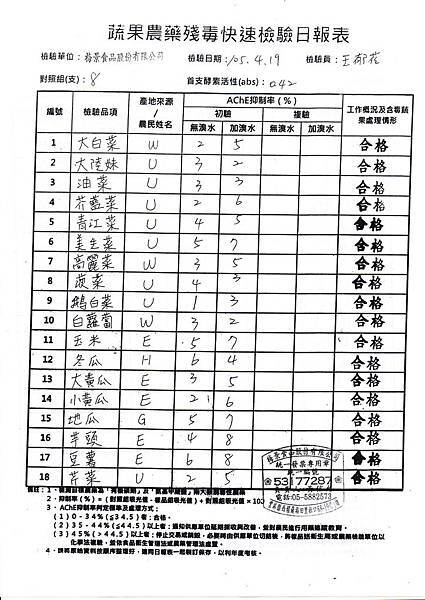 蔬果農藥殘毒快速檢驗日報表
檢驗單位：裕景食品股份有限公司 檢驗日期：105.4.19 檢驗員：王郁花
對照組(支)：8 首支酵素活性(abs)：0.42
編號 檢驗品項 產地來源/農民姓名 AChE抑制率(%) 工作概況及含毒蔬果處理情形
初驗 複驗
無溴水 加溴水 無溴水 加溴水
1 大白菜 W 2 5 合格
2 大陸妹 U 3 2 合格
3 油菜 U 3 3 合格
4 芥藍菜 U 2 6 合格
5 青江菜 U 4 5 合格
6 美生菜 U 5 7 合格
7 高麗菜 W 3 5 合格
8 菠菜 U 4 3 合格
9 鵝白菜 U 1 3 合格
10 白蘿蔔 W 3 2 合格
11 玉米 E 5 7 合格
12 冬瓜 H 6 4 合格
13 大黃瓜 E 3 5 合格
14 小黃瓜 E 2 6 合格
15 地瓜 G 5 7 合格
16 芋頭 E 4 8 合格
17 豆薯 E 6 8 合格
18 芹菜 U 2 5 合格
裕景食品股份有限公司
統一發票專用章
統一編號
53177287
電話:05-5882573
2．抑制率(%)＝(對照組吸光值－樣品組吸光值)÷對照組吸光值×100
3．AChE抑制率判定標準及處理方式：
(1) 0-34%(≦34.5)者：合格。
(2) 35-44%(≦44.5)以上者：通知供應單位延期採收與改善，並對農民進行用藥追蹤教育。
(3) 45%(>44.5)以上者：停止交易或銷毀，必要時由供應單位切結後，將樣品送衛生局或農藥檢驗單位以
化學法複驗，並依食品衛生管理法或農藥管理法處置。